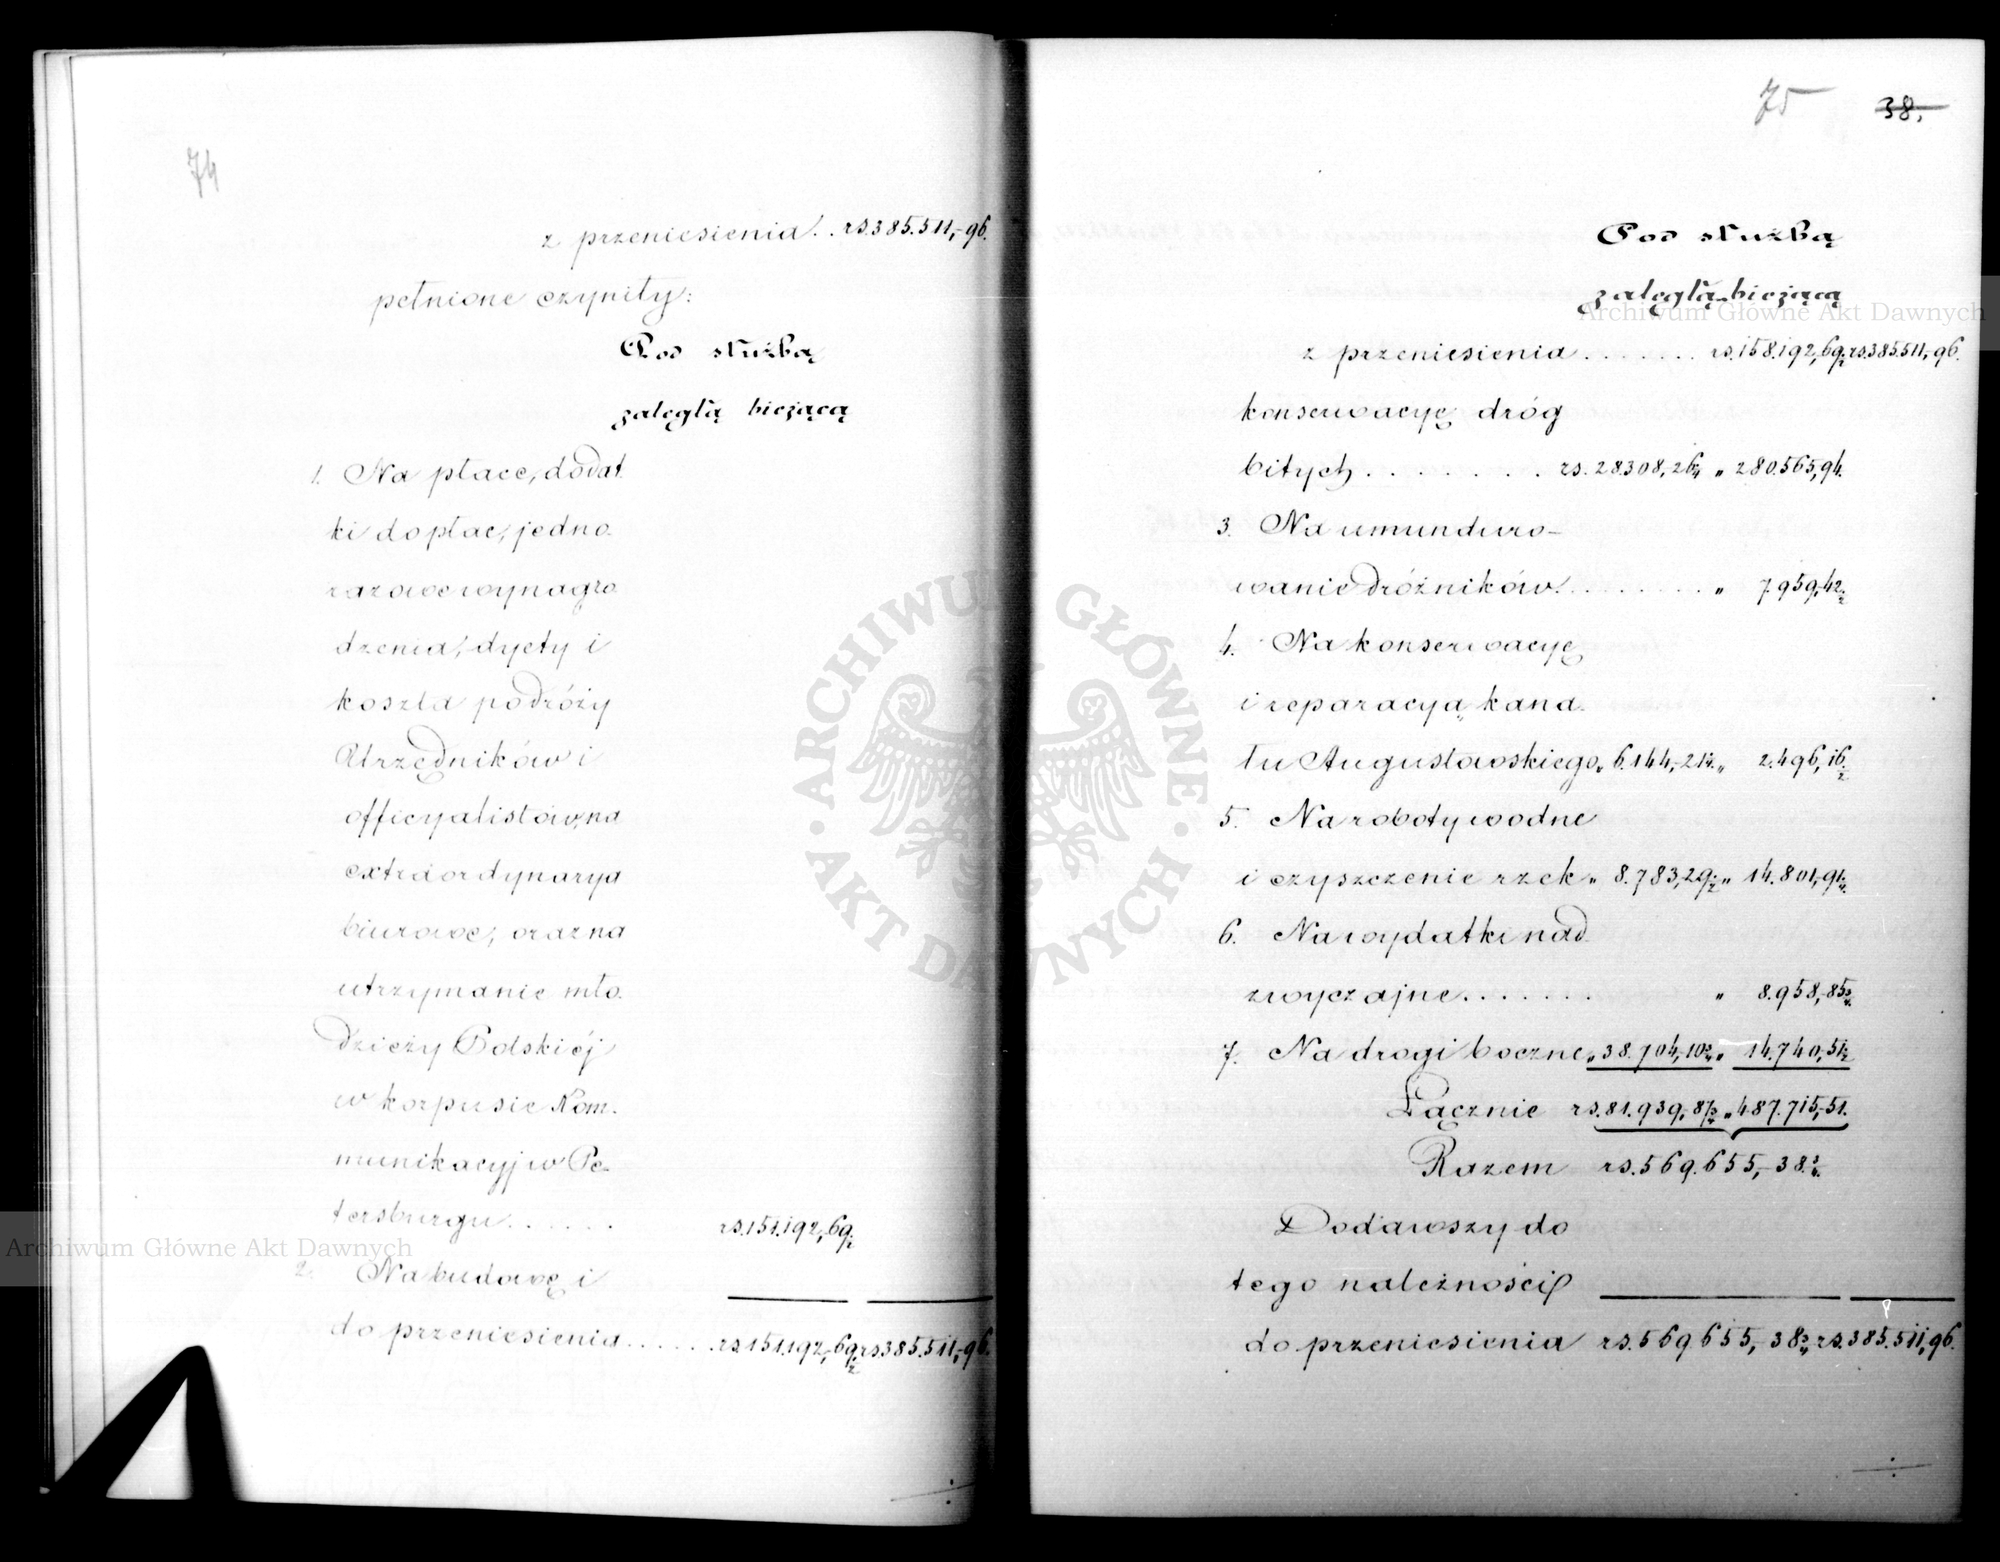 74
z przeniesienia . . rs. 385.511,-96.
pełnione czyniły:
Pod służbą
zaległą bieżącą
1. Na płace, dodat
ki do płac, jedno-
razowe wynagro
dzenia, dyety i
koszta podróży
Urzędników i
officyalistów, na
extraordynarya
biurowe, oraz na
utrzymanie mło-
dzieży Polskiéj
w korpusie Kom-
munikacyj w Pe-
tersburgu . . . . . . rs. 151.192,-69 1/2
2. Na budowę i
do przeniesienia . . . . . . rs. 151.192,-69 1/2 rs. 385.511,-96.
75 38.
Pod służbą
zaległą bieżącą
z przeniesienia . . . . . . . rs. 158.192,69 1/2 rs. 385.511,-96.
konserwacyę dróg
bitych . . . . . . . . rs. 28.308,-26 1/4 " 280.565,94.
3. Na umunduro-
wanie dróżników . . . . . . . . " 7.959,-42 1/2
4. Na konserwacyę
i reparacyą kana-
łu Augustowskiego " 6.144,-21 1/4 " 2.496,16 1/2
5. Na roboty wodne
i czyszczenie rzek " 8.783,29 1/2 " 14.801,-91 1/4
6. Na wydatki nad-
zwyczajne . . . . . . . " 8.958,-85 3/4
7. Na drogi boczne " 38.704,-10 3/4 " 14.740,-51 1/2
Łącznie rs. 81.939,-87 3/4 " 487.715,-51.
Razem rs. 569.655,-38 3/4
Dodawszy do
tego należności
do przeniesienia rs. 569.655,-38 3/4 rs. 385.511,96.
Archiwum Główne Akt Dawnych
ARCHIWUM GŁÓWNE
AKT DAWNYCH
Archiwum Główne Akt Dawnych